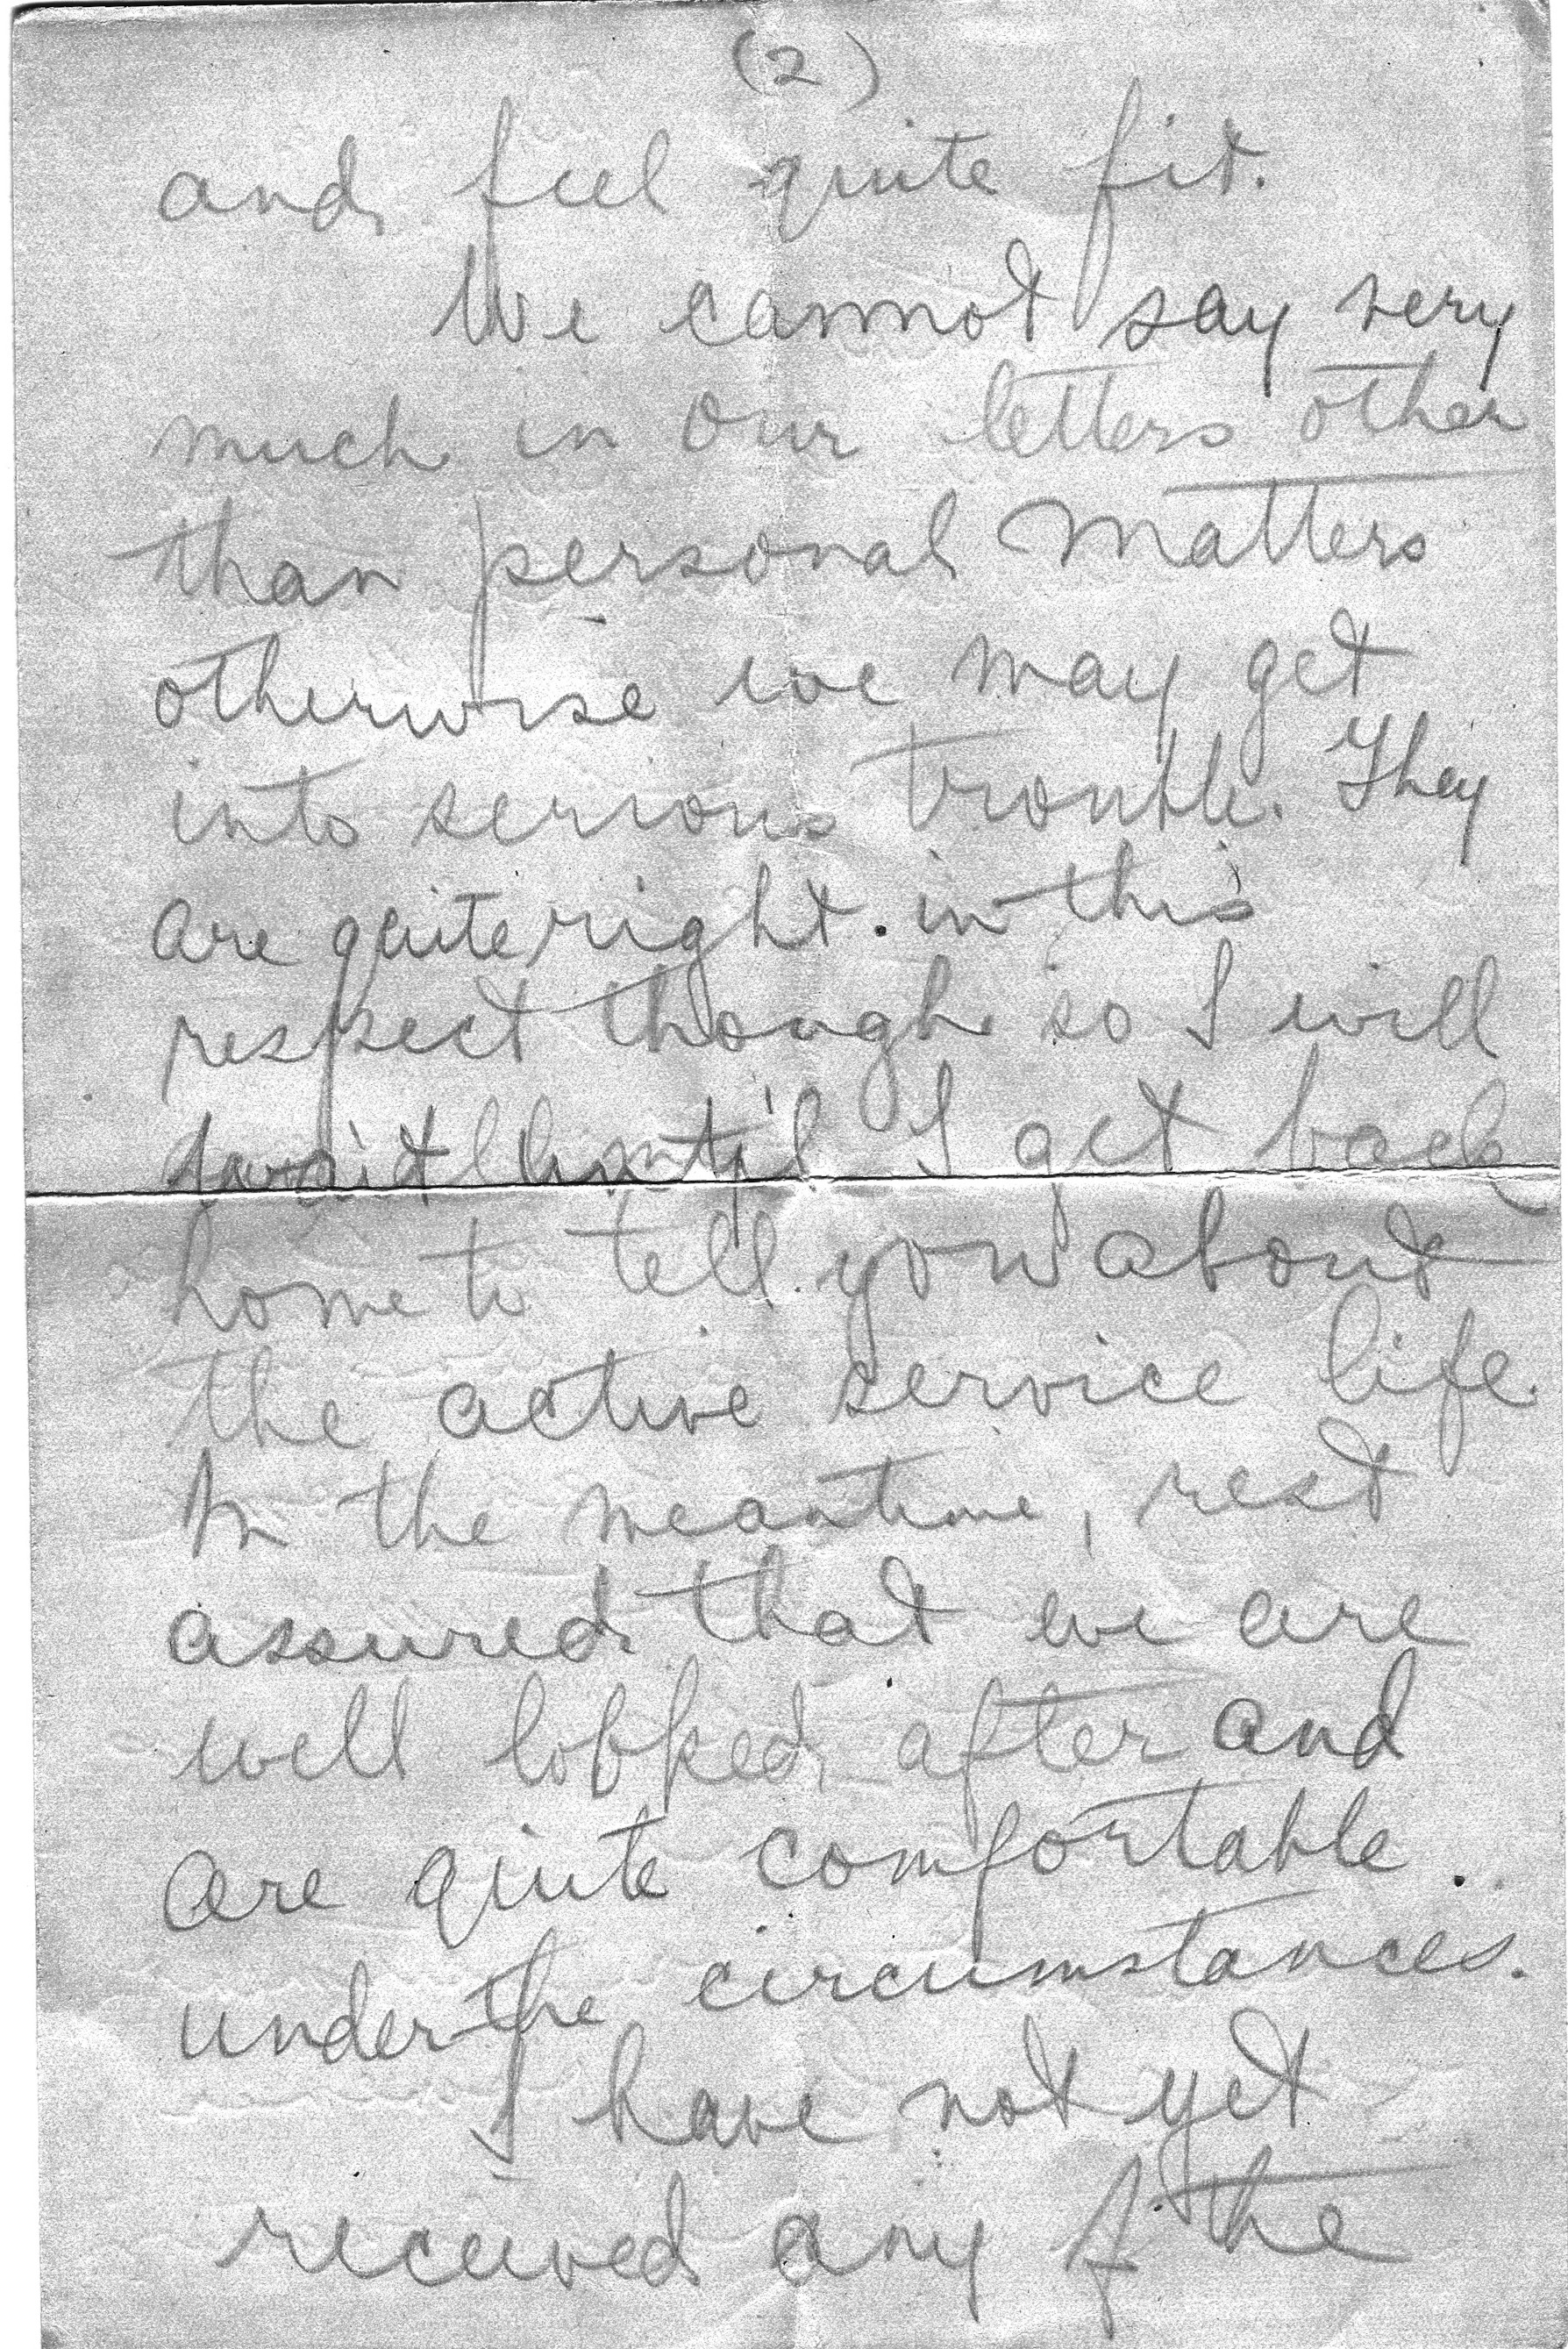 (2)
and feel quite fit.
We cannot say very
much in our letters other
than personal matters
otherwise we may get
into serious trouble. They
are quite right in this
respect though so I will
await until I get back
home to tell you about
the active service life.
In the meantime, rest
assured that we are
well looked after and
are quite comfortable
under the circumstances.
I have not yet
received any of the